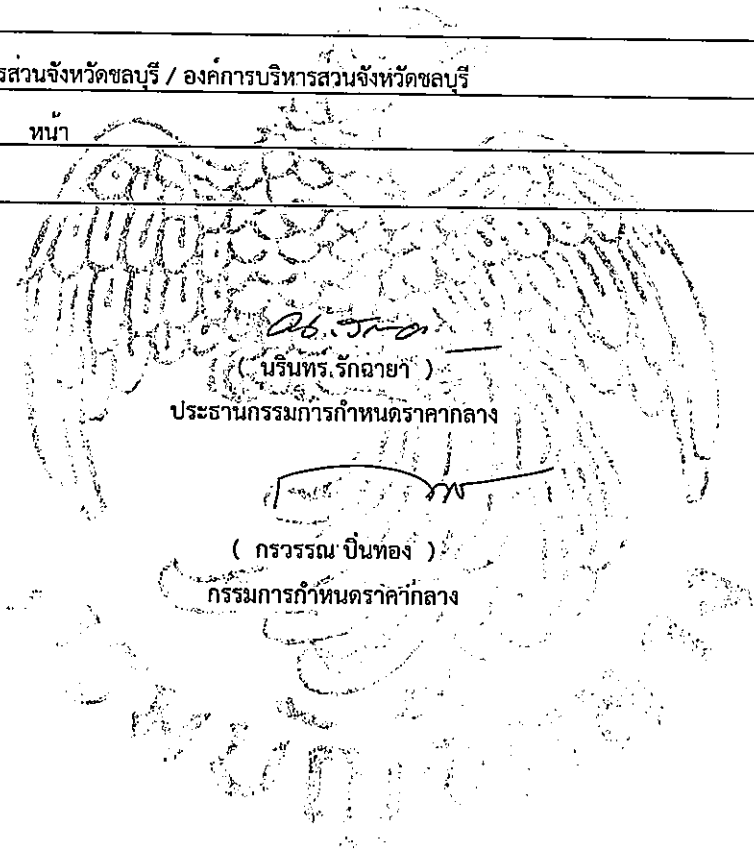 รส่วนจังหวัดชลบุรี / องค์การบริหารส่วนจังหวัดชลบุรี
หน้า
( นรินทร์ รักฉายา )
ประธานกรรมการกำหนดราคากลาง
( กรวรรณ ปิ่นทอง )
กรรมการกำหนดราคากลาง